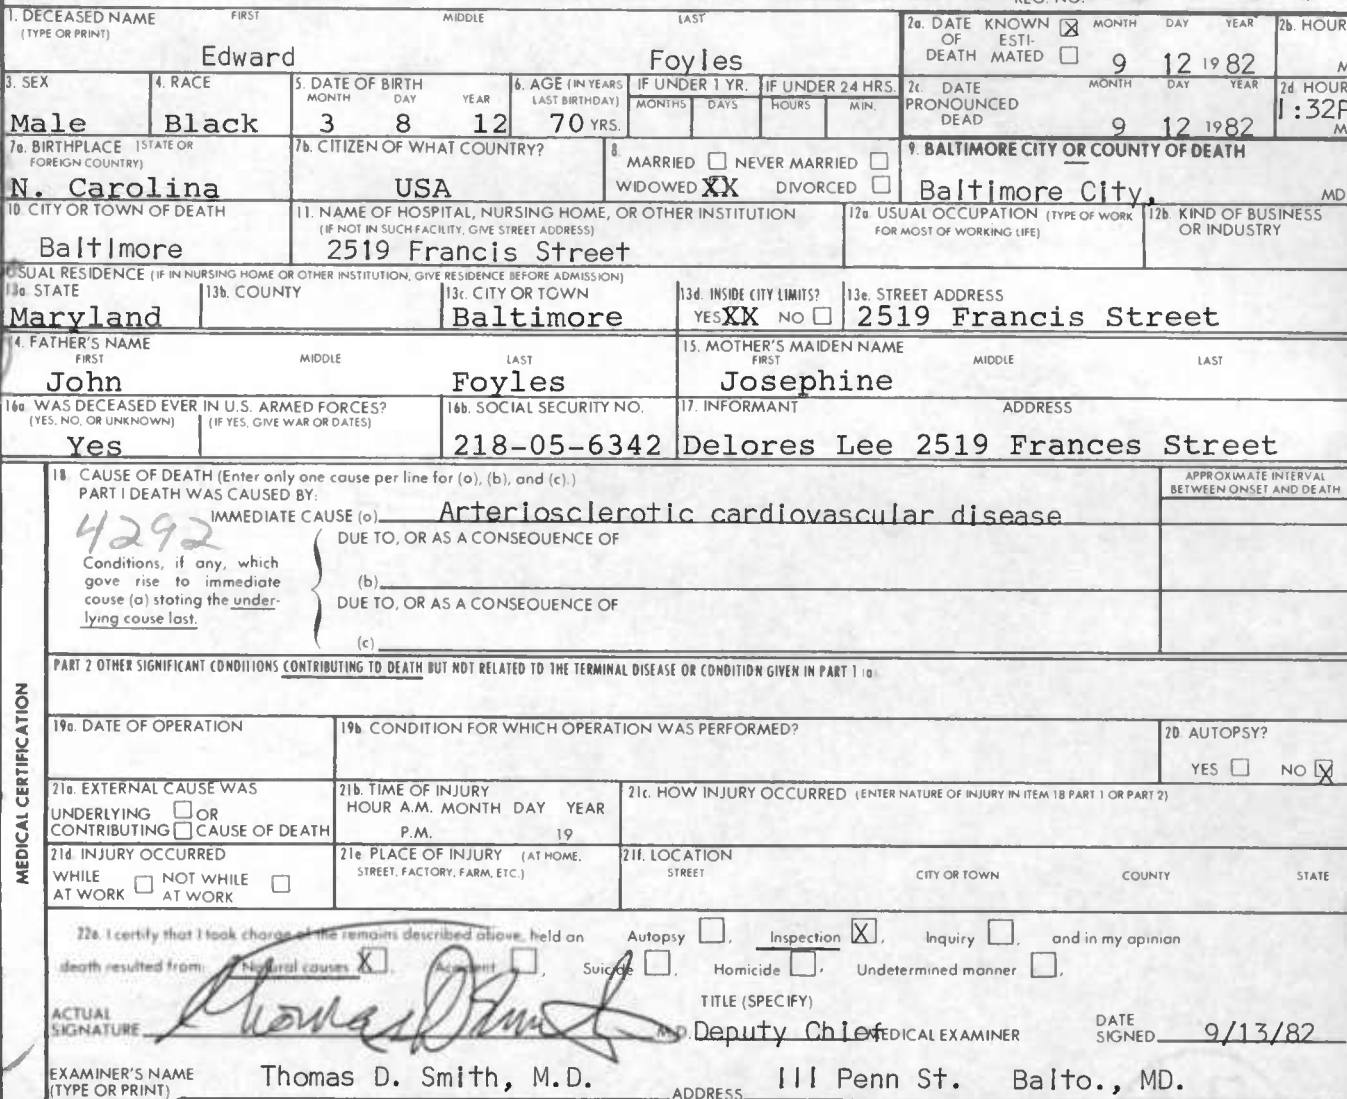 1. DECEASED NAME FIRST MIDDLE LAST
(TYPE OR PRINT)
Edward Foyles
2a. DATE KNOWN X MONTH DAY YEAR
OF ESTI-
DEATH MATED
9 12 1982
2b. HOUR
M
3. SEX
Male
4. RACE
Black
5. DATE OF BIRTH
MONTH DAY YEAR
3 8 12
6. AGE (IN YEARS
LAST BIRTHDAY)
70 YRS.
IF UNDER 1 YR.
MONTHS DAYS
IF UNDER 24 HRS.
HOURS MIN.
2c. DATE MONTH DAY YEAR
PRONOUNCED
DEAD
9 12 1982
2d HOUR
1:32P
M
7a. BIRTHPLACE (STATE OR
FOREIGN COUNTRY)
N. Carolina
7b. CITIZEN OF WHAT COUNTRY?
USA
8.
MARRIED NEVER MARRIED
WIDOWED XX DIVORCED
9. BALTIMORE CITY OR COUNTY OF DEATH
Baltimore City, MD
10. CITY OR TOWN OF DEATH
Baltimore
11. NAME OF HOSPITAL, NURSING HOME, OR OTHER INSTITUTION
(IF NOT IN SUCH FACILITY, GIVE STREET ADDRESS)
2519 Francis Street
12a. USUAL OCCUPATION (TYPE OF WORK
FOR MOST OF WORKING LIFE)
12b. KIND OF BUSINESS
OR INDUSTRY
USUAL RESIDENCE (IF IN NURSING HOME OR OTHER INSTITUTION, GIVE RESIDENCE BEFORE ADMISSION)
13a. STATE
Maryland
13b. COUNTY
13c. CITY OR TOWN
Baltimore
13d. INSIDE CITY LIMITS?
YES XX NO
13e. STREET ADDRESS
2519 Francis Street
14. FATHER'S NAME
FIRST MIDDLE LAST
John Foyles
15. MOTHER'S MAIDEN NAME
FIRST MIDDLE LAST
Josephine
16a. WAS DECEASED EVER IN U.S. ARMED FORCES?
(YES, NO, OR UNKNOWN) (IF YES, GIVE WAR OR DATES)
Yes
16b. SOCIAL SECURITY NO.
218-05-6342
17. INFORMANT ADDRESS
Delores Lee 2519 Frances Street
MEDICAL CERTIFICATION
18. CAUSE OF DEATH (Enter only one cause per line for (a), (b), and (c).)
PART I DEATH WAS CAUSED BY:
IMMEDIATE CAUSE (a) Arteriosclerotic cardiovascular disease
4292
DUE TO, OR AS A CONSEQUENCE OF
Conditions, if any, which
gove rise to immediate
cause (a) stating the under-
lying couse last.
(b)
DUE TO, OR AS A CONSEQUENCE OF
(c)
APPROXIMATE INTERVAL
BETWEEN ONSET AND DEATH
PART 2 OTHER SIGNIFICANT CONDITIONS CONTRIBUTING TO DEATH BUT NOT RELATED TO THE TERMINAL DISEASE OR CONDITION GIVEN IN PART 1 (a)
19a. DATE OF OPERATION
19b. CONDITION FOR WHICH OPERATION WAS PERFORMED?
20. AUTOPSY?
YES NO X
21a. EXTERNAL CAUSE WAS
UNDERLYING OR
CONTRIBUTING CAUSE OF DEATH
21b. TIME OF INJURY
HOUR A.M. MONTH DAY YEAR
P.M. 19
21c. HOW INJURY OCCURRED (ENTER NATURE OF INJURY IN ITEM 18 PART 1 OR PART 2)
21d. INJURY OCCURRED
WHILE NOT WHILE
AT WORK AT WORK
21e. PLACE OF INJURY (AT HOME,
STREET, FACTORY, FARM, ETC.)
21f. LOCATION
STREET CITY OR TOWN COUNTY STATE
22a. I certify that I took charge of the remains described above, held an Autopsy , Inspection X , Inquiry , and in my opinion
death resulted from: Natural causes X , Accident , Suicide , Homicide , Undetermined manner ,
ACTUAL
SIGNATURE Thomas D. Smith M.D.
TITLE (SPECIFY)
Deputy Chief MEDICAL EXAMINER
DATE
SIGNED 9/13/82
EXAMINER'S NAME
(TYPE OR PRINT) Thomas D. Smith, M.D.
ADDRESS 111 Penn St. Balto., MD.